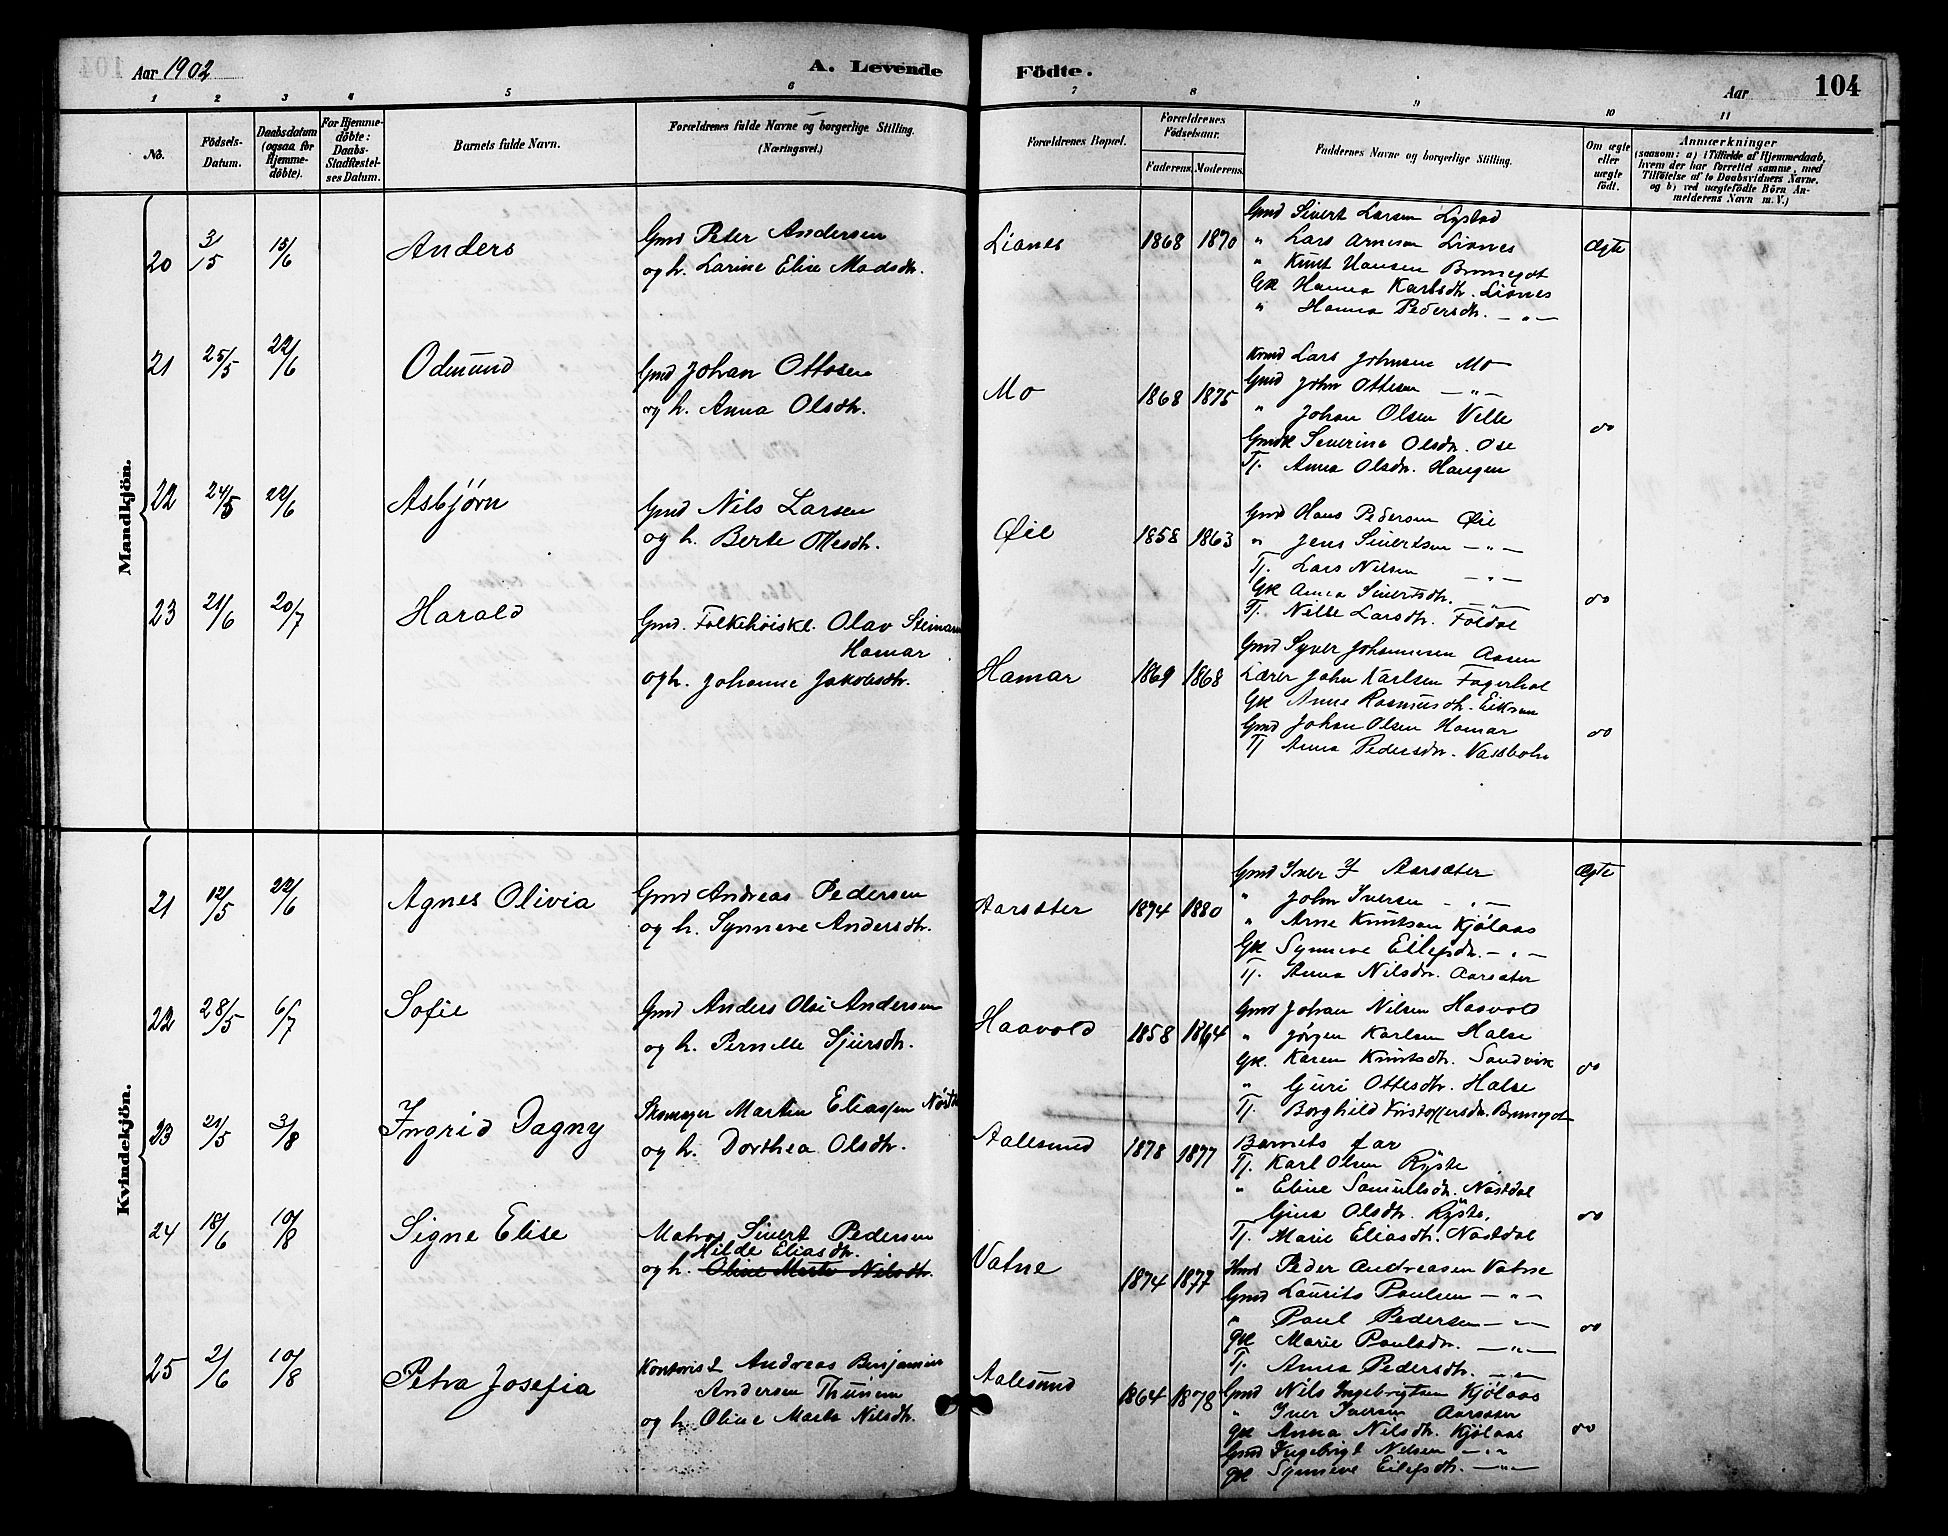 Aar 1902
A. Levende
Födte.
Aar
104
1 2 3 4 5 6 7 8 9 10 11
No.
Födsels-Datum.
Daabsdatum (ogsaa for Hjemme-döbte).
For Hjemme-döbte: Daabs-Stadfæstel-ses Datum.
Barnets fulde Navn.
Forældrenes fulde Navne og borgerlige Stilling. (Næringsvei.)
Forældrenes Bopæl.
Forældrenes Födselsaar.
Faderens. Moderens.
Faddernes Navne og borgerlige Stilling.
Om ægte eller uægte født.
Anmærkninger
(saasom: a) i Tilfælde af Hjemmedaab, hvem der har forrettet samme, med Tilföielse af to Daabsvidners Navne, og b) ved uægtefödte Börn An-melderens Navn m. V.)
Mandkjön.
20 3/5 15/6 Anders
Gmd Peter Andersen
og h. Larine Elise Madsdtr.
Lianes 1868 1870
Gmd Sivert Larsen Lystad
" Lars Arnesen Lianes
" Knut Hansen Brunsgot
Gk Hanna Karlsdtr. Lianes
" Hanna Pedersdtr. — " —
Ægte
21 25/5 22/6 Odmund
Gmd Johan Ottosen
og h. Anna Olsdtr.
Mo 1868 1875
Lars Johnsen Mo
Gmd John Ottesen — " —
" Johan Olsen Velle
Severine Olsdtr. Ose
Tj. Anna Olsdtr. Haugen
oo
22 24/5 22/6 Asbjørn
Gmd Nils Larsen
og h. Berte Ottesdtr.
Øie 1858 1863
Gmd Hans Pedersen Øie
" Jens Sivertsen — " —
Tj. Lars Nilsen — " —
Gk Anna Sivertsdtr. — " —
Tj. Nille Larsdtr. Foldal
oo
23 21/6 20/7 Harald
Gmd. Folkehøiskl. Olav Steinarn
Hamar
og h. Johanne Jakobsdtr.
Hamar 1869 1868
Gmd Syver Johannesen Aasen
Lærer John Karlsen Fagerhol
Gk Anne Rasmusdtr. Eikrem
Gmd Johan Olsen Hamar
Tj Anna Pedersdtr. Vassbotn
oo
Kvindekjön.
21 12/5 22/6 Agnes Olivia
Gmd Andreas Pedersen
og h. Synneve Andersdtr.
Aarsæter 1874 1880
Gmd Iver I Aarsæter
" John Iversen — " —
" Arne Knutsen Kjølaas
Gk Synneve Eilefsdtr. — " —
Tj. Anna Nilsdtr. Aarsæter
Ægte
22 28/5 6/7 Sofie
Gmd Anders Olai Andersen
og h. Pernille Sjursdtr.
Haavold 1858 1864
Gmd Johan Nilsen Haavold
" Jørgen Karlsen Halse
Gk. Karen Knutsdtr. Sandvik
" Guri Ottesdtr. Halse
Tj. Borghild Kristoffersdtr. Brunsgot
oo
23 21/5 3/8 Ingrid Dagny
Skomager Martin Eliassen
og h. Dorthea Olsdtr.
Aalesund 1878 1877
Barnets far
Tj. Karl Olsen Ryste
" Eline Samuelsdtr. Nastdal
Gina Olsdtr. Ryste.
Tj. Marie Eliasdtr. Nastdal
oo
24 18/6 10/8 Signe Elise
Matros Sivert Pedersen
Hilde Eliasdtr.
og h. Oline Marta Nilsdtr.
Vatne 1874 1877
Peder Andreasen Vatne
Gmd Laurits Paulsen — " —
" Paul Pedersen — " —
gk Marie Paulsdtr. — " —
Tj. Anna Pedersdtr. — " —
oo
25 2/6 10/8 Petra Josefia
Kontorist Andreas Benjamin
Andersen Thunem
og h. Oline Marta Nilsdtr.
Aalesund 1864 1878
Gmd Nils Ingebrigtsen Kjølaas
" Iver Iversen Aarsæter
gk Anna Nilsdtr. Kjølaas
Gmd Ingebrigt Nilsen — " —
gk Synneve Eilefsdtr. — " —
oo